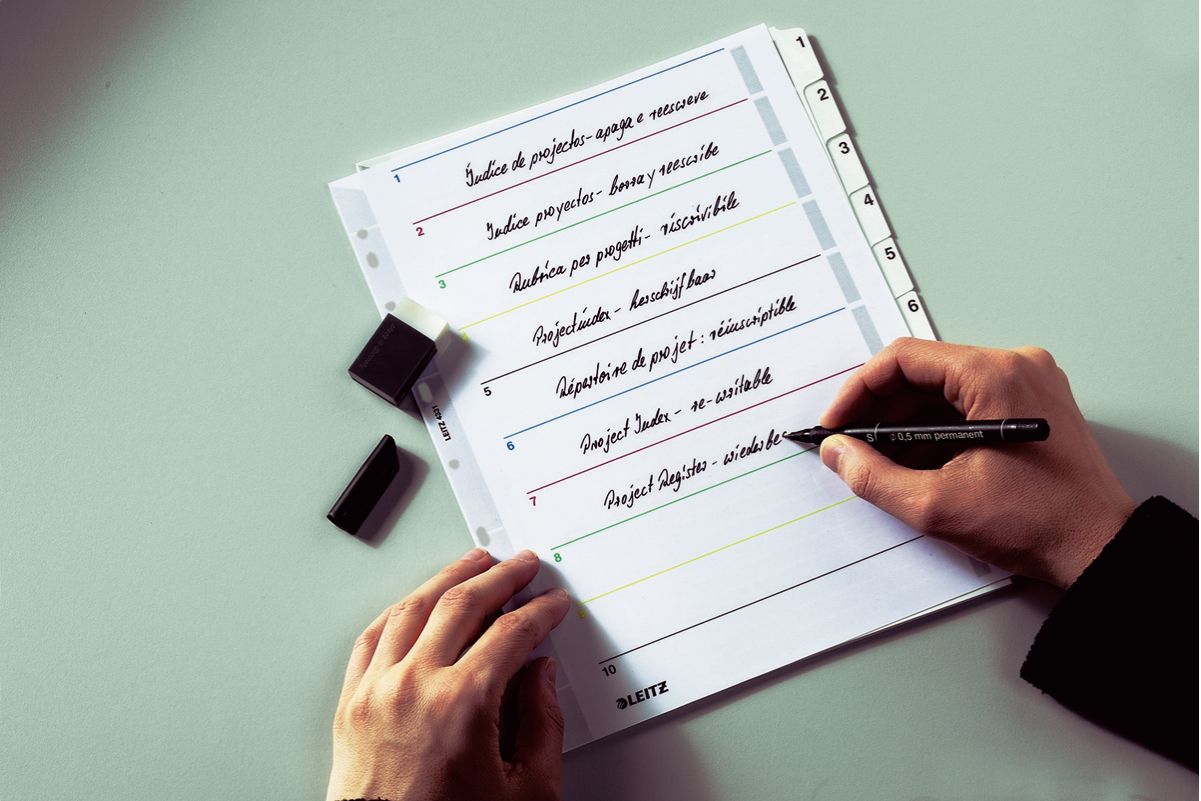 1
2
3
4
5
6
1 Índice de projectos - apaga e reescreve
2 Índice proyectos - borra y reescribe
3 Rubrica per progetti - riscrivibile
Projectindex - herschrijfbaar
5 Répertoire de projet : réinscriptible
6 Project Index - re-writable
7 Project Register - wiederbes
8
9
10
LEITZ
LEITZ 4331
S 0,5 mm permanent